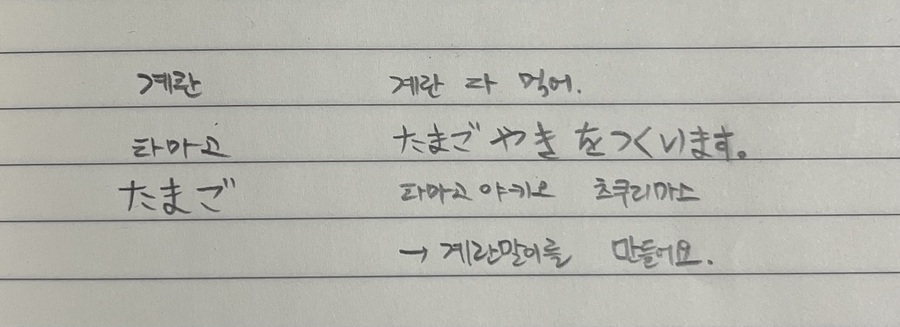 계란 계란 다 먹어.
타마고 たまごやきをつくいます。
たまご 타마고야키오 츠쿠리마스
→ 계란말이를 만들어요.